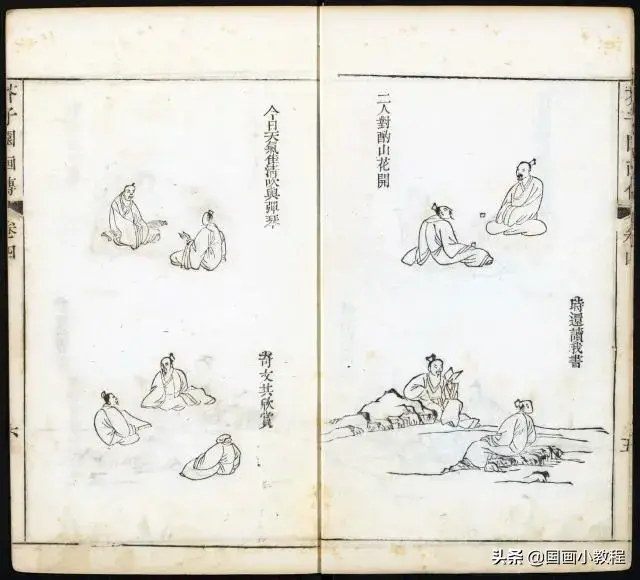 二人對酌山花開
時還讀我書
今日天氣佳清吹與彈琴
奇文共欣賞
芥子園畫傳
卷四
六
卷四
五
头条 @国画小教程